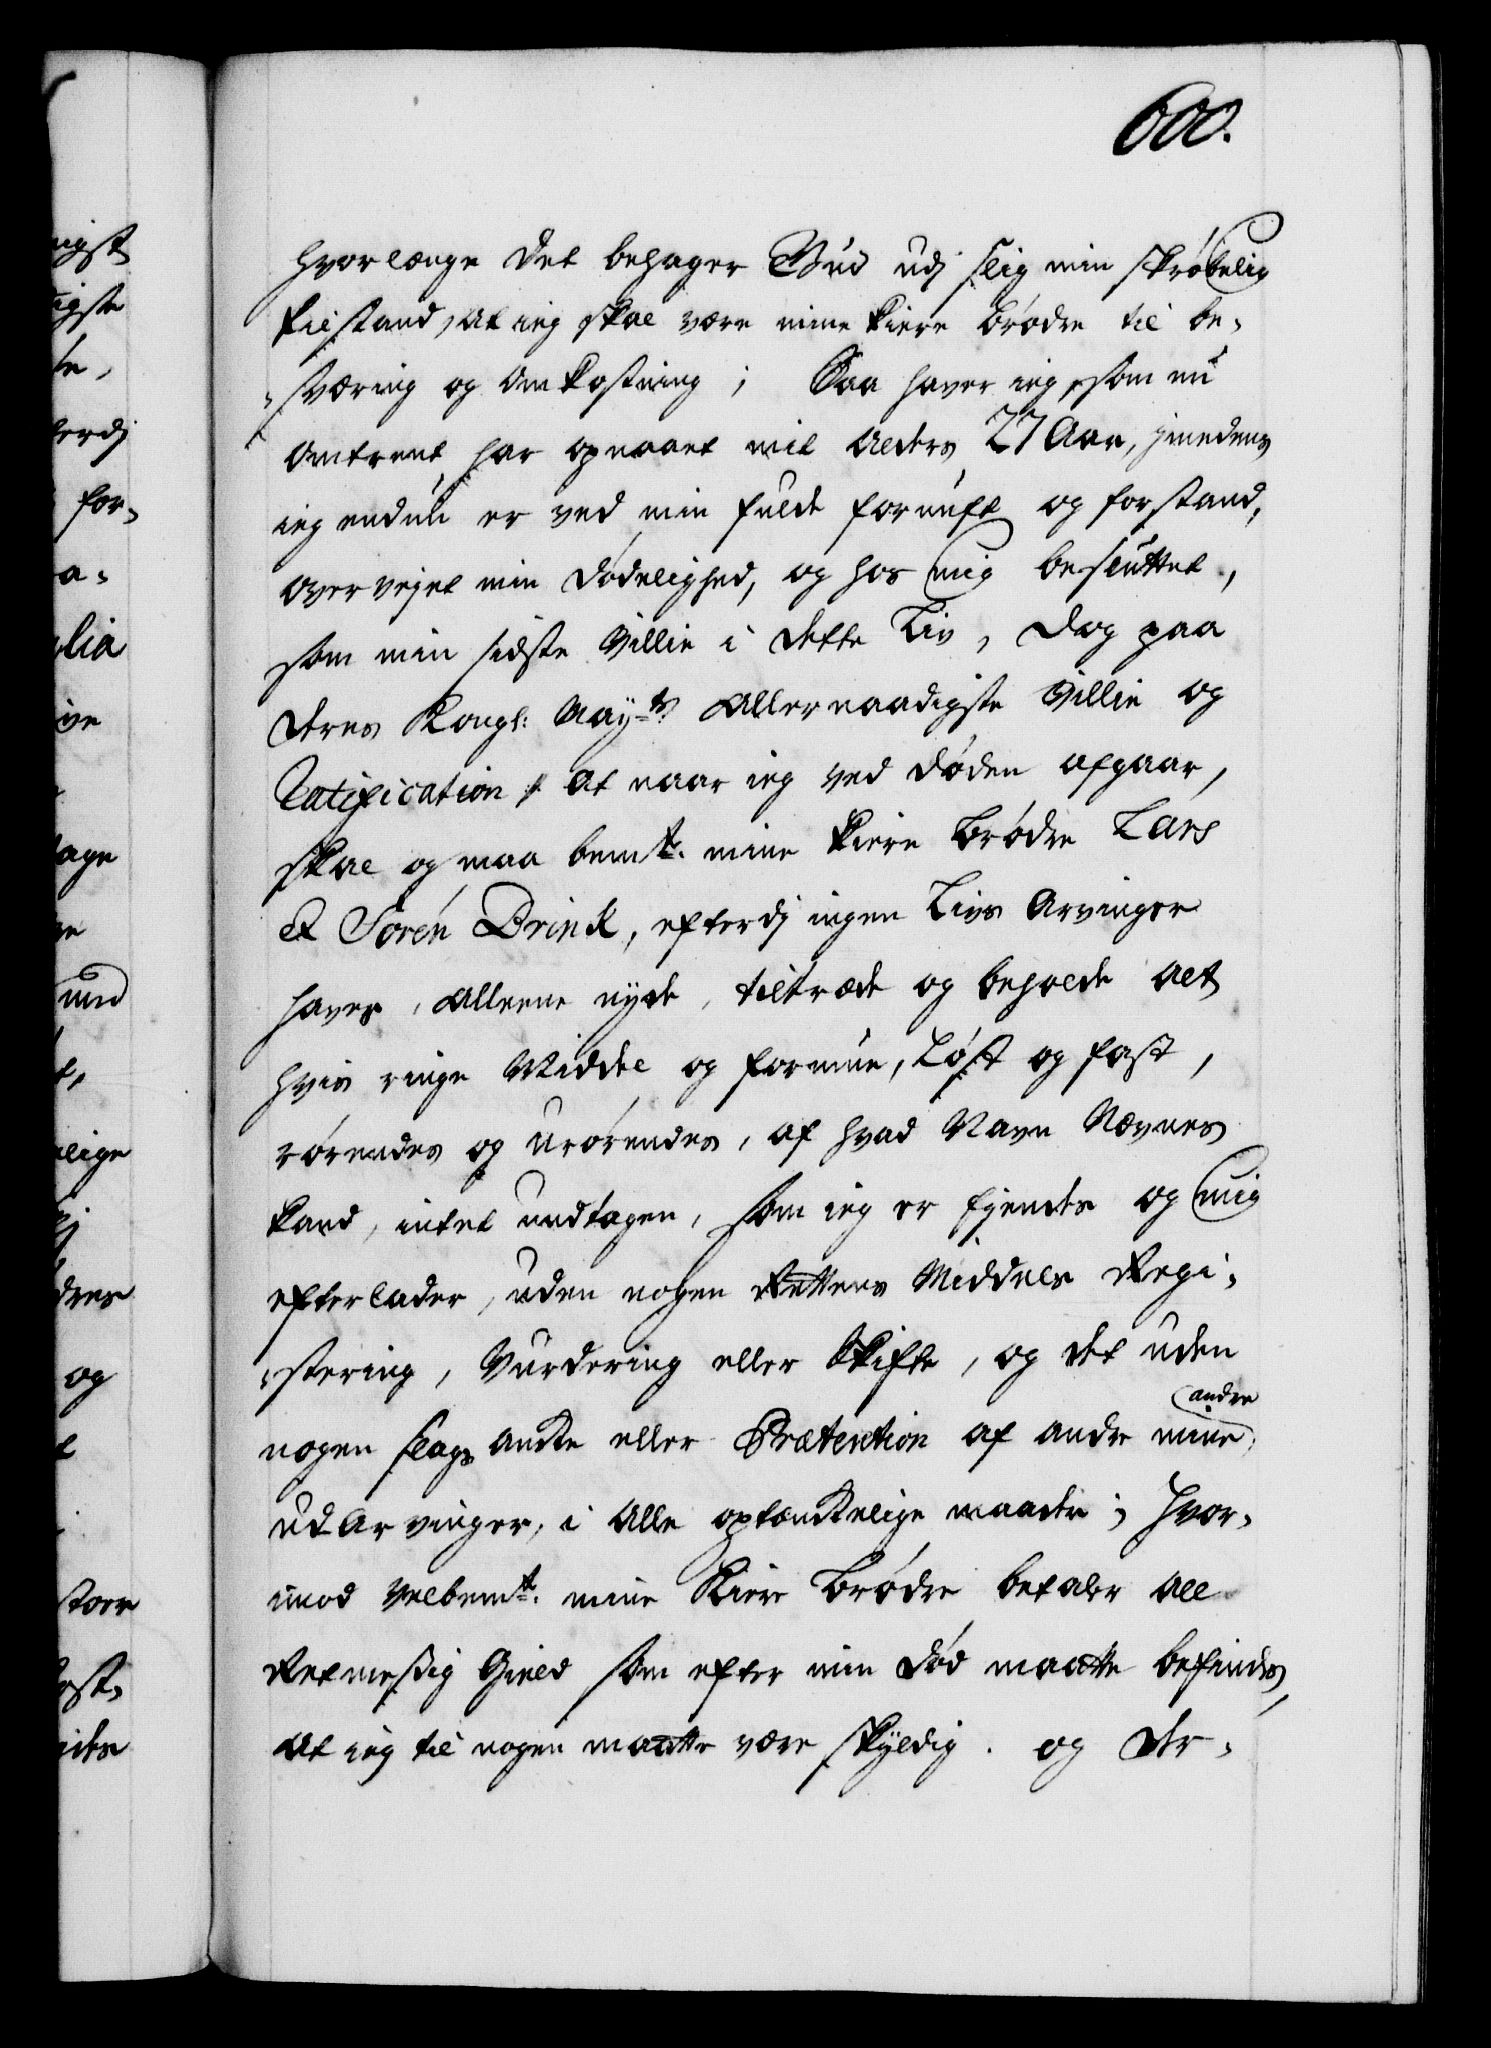 600.
hvorlænge det behager Gud udj slig min skrøbelig
tilstand, at ieg skal være mine kiere brødre til be-
sværing og omkostning; Saa haver ieg, som nu
omtrent har opnaaet mit Alders 27 Aar, imedens
ieg endnu er ved min fulde fornuft og forstand,
overvejet min dødelighed, og hos mig besluttet,
som min sidste Villie i dette Liv, dog paa
deres Kongl: May=ts Allernaadigste Villie og
Ratification, At naar ieg ved døden afgaar,
skal og maa bemte. mine kiere brødre Lars
& Sørén Brinck, efterdj ingen Livs Arvinger
haves, Alleene nyde, tiltræde og beholde alt
hvis ringe Middel og formue, Løst og fast,
rørendes og urørendes, af hvad Navn Nævnes
kand, intet undtagen, som ieg er Ejende og mig
efterlader, uden nogen Rettens Middels Regi-
stering, Vurdering eller Skifte, og det uden
nogen slags Ancke eller Prætention af andre mine
andre
UdArvinger, i Alle optænckelige maader; hvor-
imod velbemte. mine Kiere brødre betaler All
Retmessig Gield som efter min død maatte befindes,
At ieg til nogen maatte være skyldig. og der-
ligst
ligste
te,
terdj
for-
a-
lia
ive
age
und
lige
dres
og
t
stoer
ost-